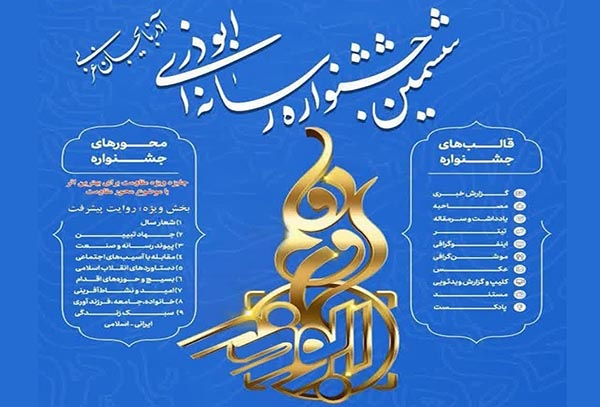 ششمین جشنواره رسانه‌ای ابوذر
آذربایجان غربی
قالب‌های
جشنواره
گزارش خبری
مصاحبه
یادداشت و سرمقاله
تیتر
اینفوگرافی
موشن‌گرافی
عکس
کلیپ و گزارش ویدئویی
مستند
پادکست
محورهای
جشنواره
جایزه ویژه مقاومت برای بهترین اثر
با موضوع محور مقاومت
بخش ویژه، روایت پیشرفت
۱) شعار سال
۲) جهاد تبیین
۳) پیوند رسانه و صنعت
۴) مقابله با آسیب‌های اجتماعی
۵) دستاوردهای انقلاب اسلامی
۶) بسیج و حوزه‌های اقدام
۷) امید و نشاط‌آفرینی
۸) خانواده، جامعه، فرزندآوری
۹) سبک زندگی
ایرانی - اسلامی
ابوذر